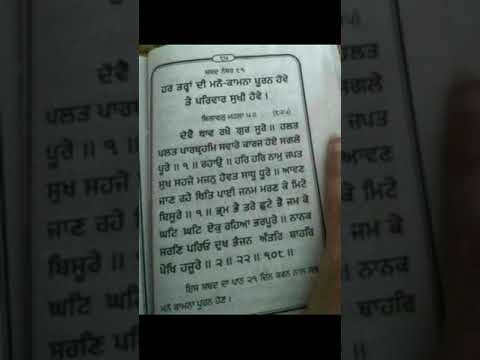 ਸ਼ਬਦ ਨੰਬਰ ੬੧
ਹਰ ਤਰ੍ਹਾਂ ਦੀ ਮਨੋ-ਕਾਮਨਾ ਪੂਰਨ ਹੋਵੇ
ਤੇ ਪਰਿਵਾਰ ਸੁਖੀ ਹੋਵੇ ।
ਬਿਲਾਵਲੁ ਮਹਲਾ ੫ ॥
ਦੋਵੈ ਥਾਵ ਰਖੇ ਗੁਰ ਸੂਰੇ ॥ ਹਲਤ
ਪਲਤ ਪਾਰਬ੍ਰਹਮਿ ਸਵਾਰੇ ਕਾਰਜ ਹੋਏ ਸਗਲੇ
ਪੂਰੇ ॥ ੧ ॥ ਰਹਾਉ ॥ ਹਰਿ ਹਰਿ ਨਾਮੁ ਜਪਤ
ਸੁਖ ਸਹਜੇ ਮਜਨੁ ਹੋਵਤ ਸਾਧੂ ਧੂਰੇ ॥ ਆਵਣ
ਜਾਣ ਰਹੇ ਥਿਤਿ ਪਾਈ ਜਨਮ ਮਰਣ ਕੇ ਮਿਟੇ
ਬਿਸੂਰੇ ॥ ੧ ॥ ਭ੍ਰਮ ਭੈ ਤਰੇ ਛੁਟੇ ਭੈ ਜਮ ਕੇ
ਘਟਿ ਘਟਿ ਏਕੁ ਰਹਿਆ ਭਰਪੂਰੇ ॥ ਨਾਨਕ
ਸਰਣਿ ਪਰਿਓ ਦੁਖ ਭੰਜਨ ਅੰਤਰਿ ਬਾਹਰਿ
ਪੇਖਿ ਹਜੂਰੇ ॥ ੨ ॥ ੨੨ ॥ ੧੦੮ ॥
ਇਸ ਸ਼ਬਦ ਦਾ ਪਾਠ ੨੧ ਦਿਨ ਕਰਨ ਨਾਲ ਸਭ
ਮਨੋ ਕਾਮਨਾ ਪੂਰਨ ਹੋਣ ।